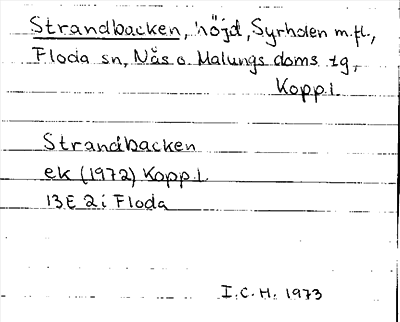 Strandbacken, höjd, Syrholen m.fl.,
Floda sn, Nås o. Malungs doms tg,
Kopp.l.
Strandbacken
ek (1972) Kopp.l.
13E 2i Floda
I.C.H. 1973